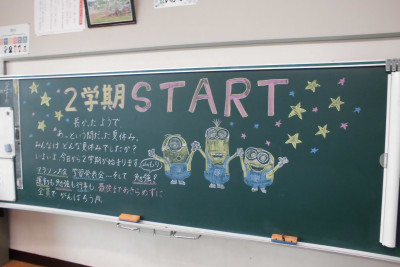 2学期START
長かったようで、
あっという間だった夏休み。
みんなはどんな夏休みでしたか?
いよいよ、今日から2学期が始まります。
マラソン大会、学習発表会…そして勉強!
運動も勉強も行事も、最後まであきらめずに
全員でがんばろう